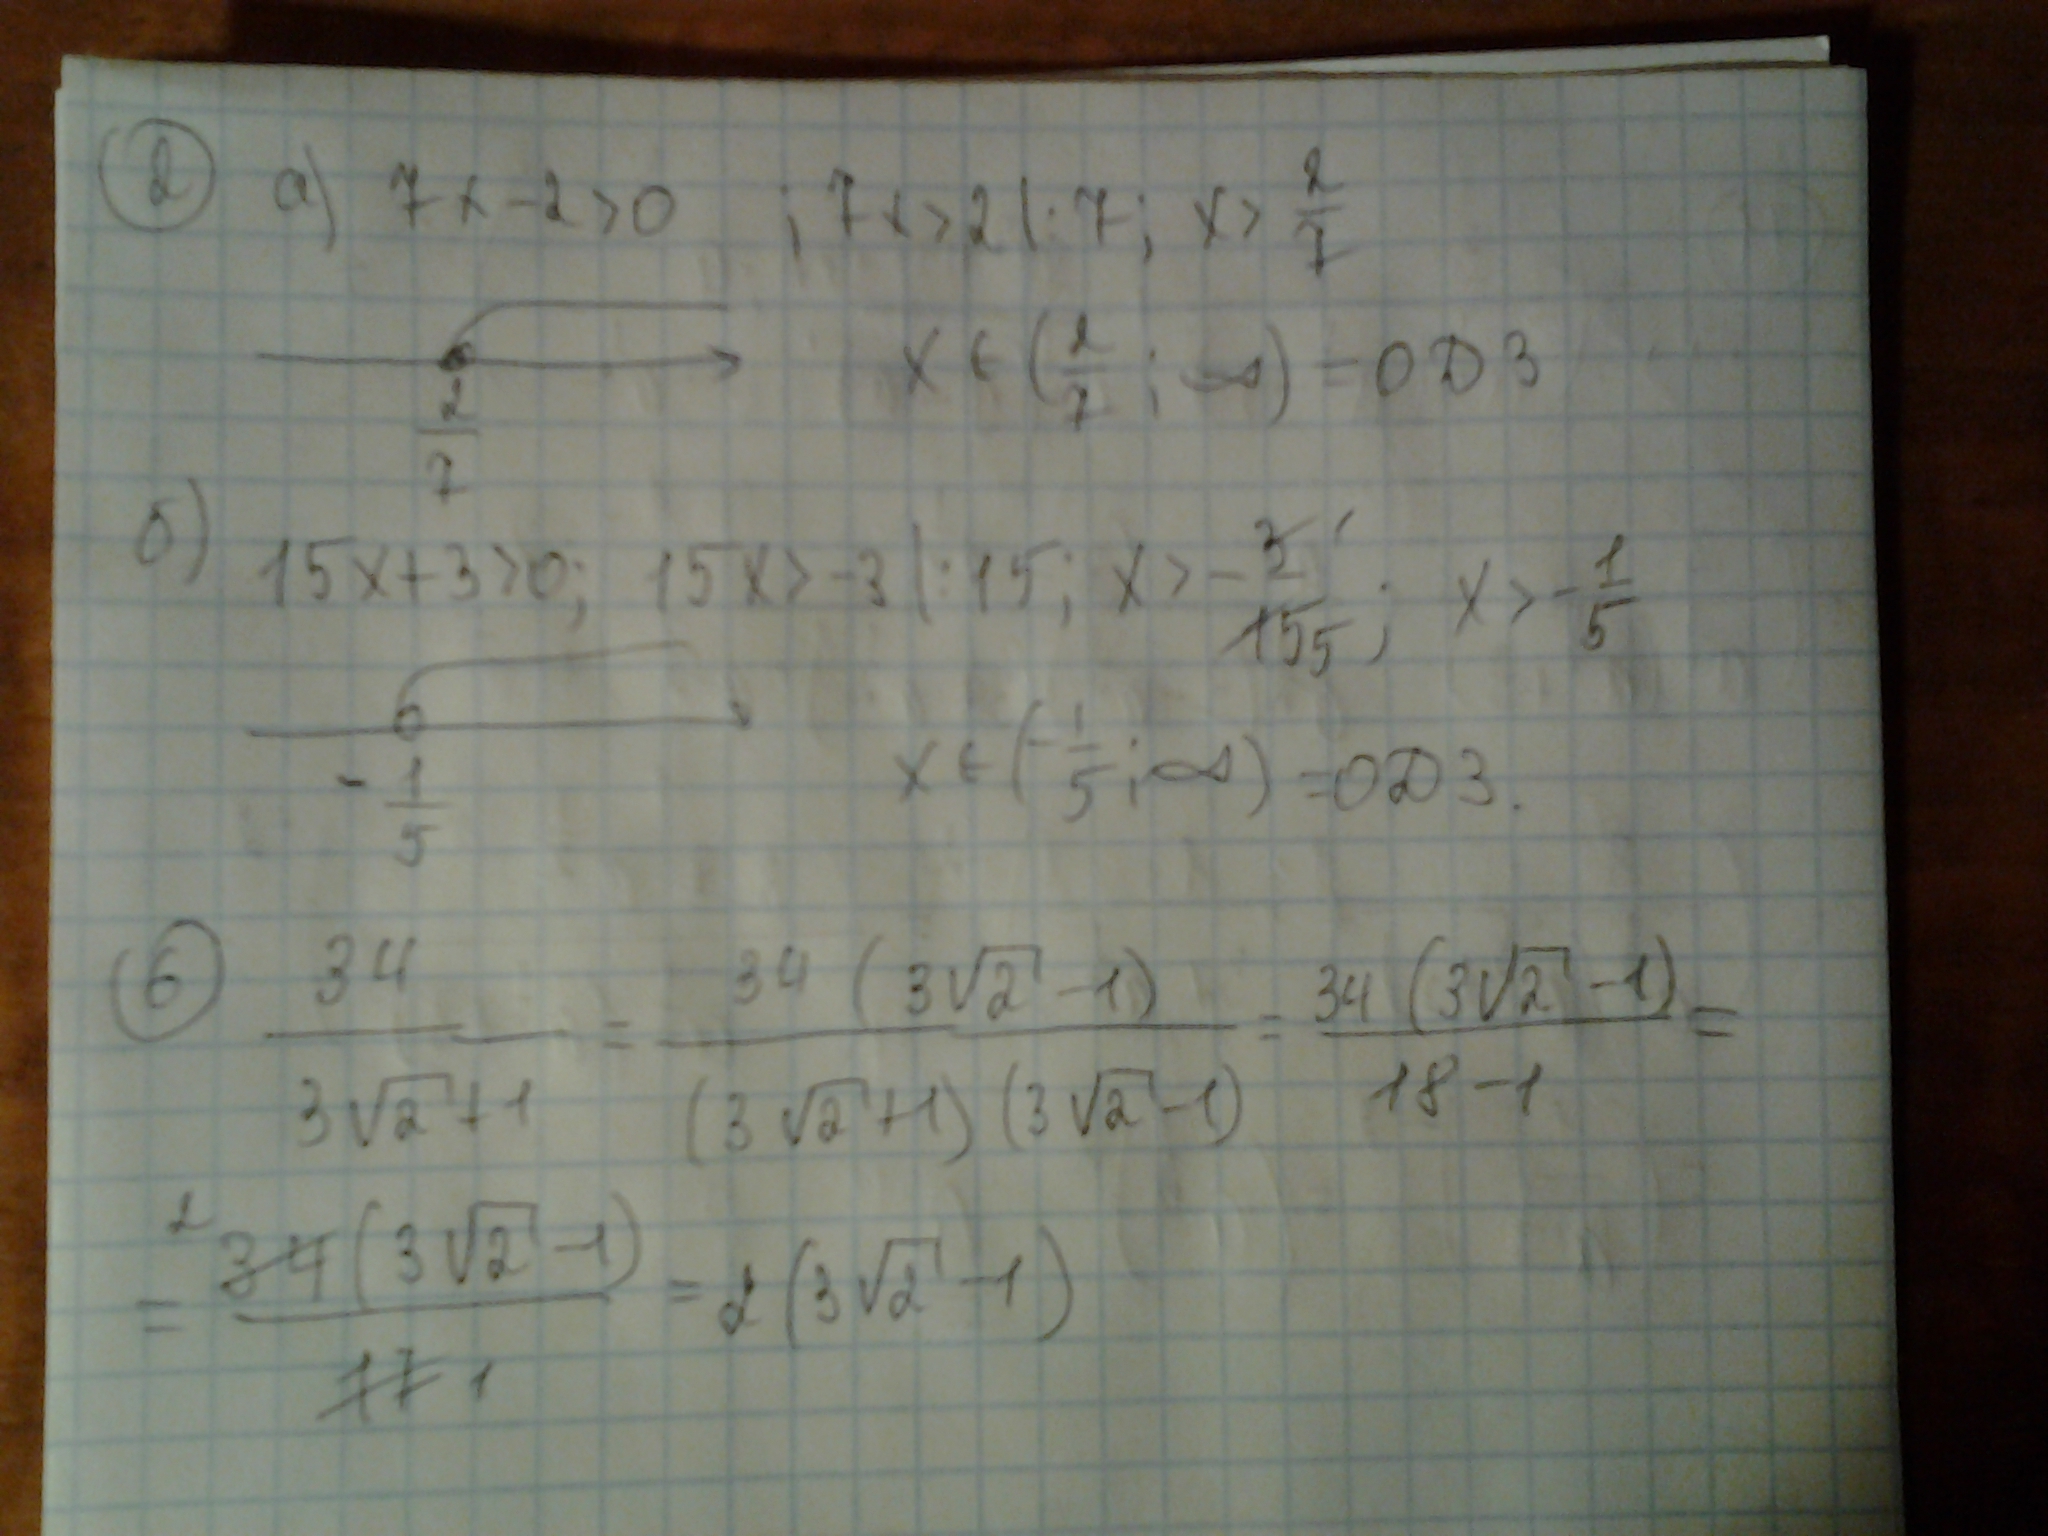 2 а) 7x-2>0 ; 7x>2 |:7; x> 2/7
2/7 x∈(2/7; ∞) =ОДЗ
б) 15x+3>0; 15x>-3 |:15; x>-3 1/15 5; x>-1/5
-1/5 x∈(-1/5; ∞) =ОДЗ.
6 34/(3√2+1) = 34(3√2-1)/((3√2+1)(3√2-1)) = 34(3√2-1)/(18-1) =
= 2 34(3√2-1)/17 1 = 2(3√2-1)